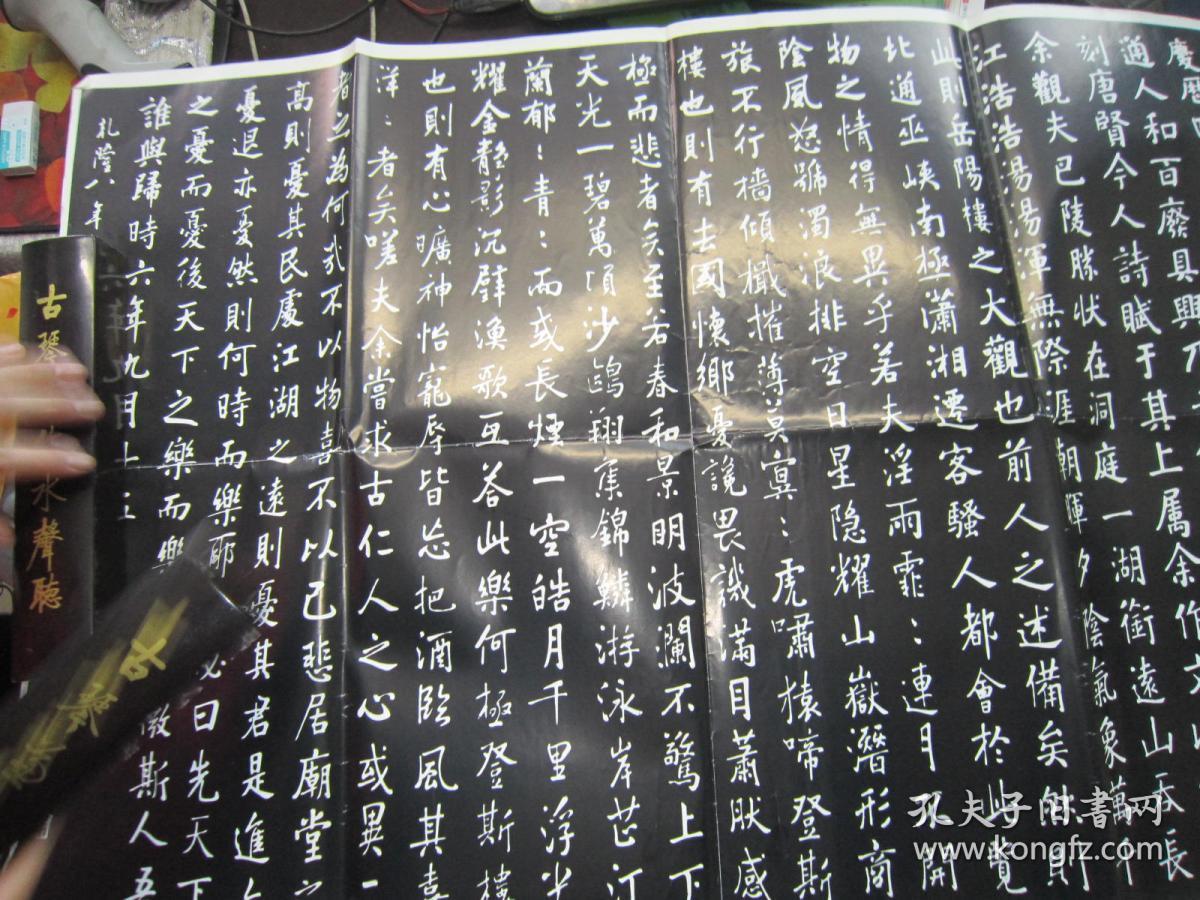 慶曆
通人和百廢具興乃
刻唐賢今人詩賦于其上屬余作文
余觀夫巴陵勝狀在洞庭一湖銜遠山吞長
江浩浩湯湯渾無際涯朝暉夕陰氣象萬千
此則岳陽樓之大觀也前人之述備矣然則
北通巫峽南極瀟湘遷客騷人都會於此覽
物之情得無異乎若夫淫雨霏：連月不開
陰風怒號濁浪排空日星隱耀山嶽潛形商
旅不行檣傾檝摧薄莫冥：虎嘯猿啼登斯
樓也則有去國懷鄉憂讒畏譏滿目蕭肰感
極而悲者矣至若春和景明波瀾不驚上下
天光一碧萬頃沙鷗翔集錦鱗游泳岸芷汀
蘭郁：青：而或長煙一空皓月千里浮光
耀金靜影沉璧漁歌互答此樂何極登斯樓
也則有心曠神怡寵辱皆忘把酒臨風其喜
洋：者矣嗟夫余嘗求古仁人之心或異二
者之為何哉不以物喜不以己悲居廟堂之
高則憂其民處江湖之遠則憂其君是進亦
憂退亦憂然則何時而樂耶必曰先天下
之憂而憂後天下之樂而樂微斯人吾
誰與歸時六年九月十五
乾隆八年
古琴 水聲聽
孔夫子旧书网
www.kongfz.com